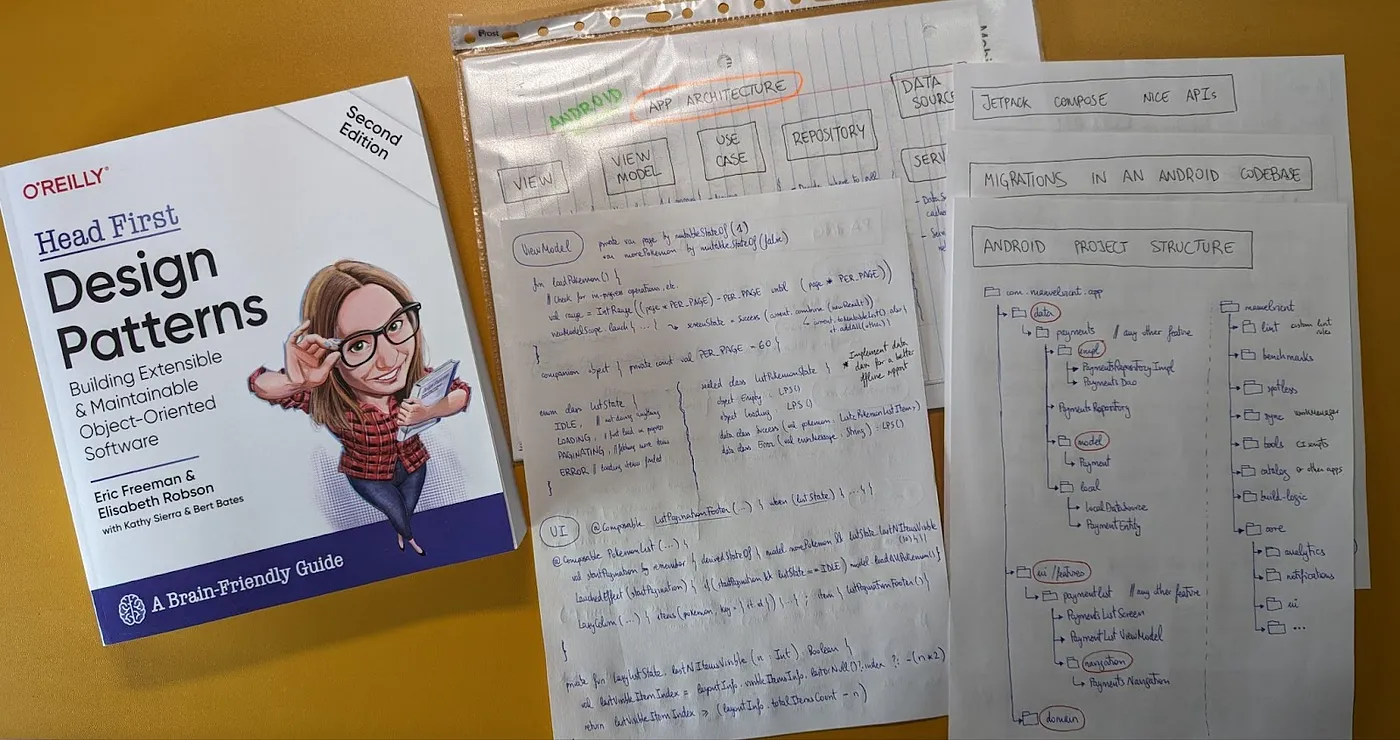 O'REILLY®
Second
Edition
Head First
Design
Patterns
Building Extensible
& Maintainable
Object-Oriented
Software
Eric Freeman &
Elisabeth Robson
with Kathy Sierra & Bert Bates
A Brain-Friendly Guide
ANDROID
APP ARCHITECTURE
VIEW
VIEW
MODEL
USE
CASE
REPOSITORY
DATA
SOURC
SERV
ViewModel
private var page by mutableStateOf(1)
var morePokemon by mutableStateOf(false)
fun loadPokemon() {
// Check for in-progress operations, etc.
val range = IntRange((page * PER_PAGE) - PER_PAGE until (page * PER_PAGE))
viewModelScope.launch { ... screenState = Success(current.combine(newResult))
}
companion object { private const val PER_PAGE = 60 }
* Implement data
layer for a better
offline support
enum class ListState {
IDLE, // not doing anything
LOADING, // first load in progress
PAGINATING, // fetching more items
ERROR // loading items failed
}
sealed class ListPokemonState {
object Empty : LPS()
object Loading : LPS()
data class Success(val pokemon: List<PokemonListItem>)
data class Error(val errorMessage: String) : LPS()
UI
@Composable ListPaginationFooter(...) { when (listState) { ... } }
@Composable PokemonList(...) {
val startPagination by remember { derivedStateOf { model.morePokemon && listState.lastNItemsVisible
LaunchedEffect(startPagination) { if (startPagination && listState == IDLE) model.loadAllPokemon() }
LazyColumn(...) { items(pokemon, key = { it.id }) { ... } ; item { ListPaginationFooter() }
}
private fun LazyListState.lastNItemsVisible(n: Int): Boolean {
val lastVisibleItemIndex = layoutInfo.visibleItemsInfo.lastOrNull()?.index ?: -(n*2)
return lastVisibleItemIndex > (layoutInfo.totalItemsCount - n)
JETPACK COMPOSE NICE APIs
MIGRATIONS IN AN ANDROID CODEBASE
ANDROID PROJECT STRUCTURE
data
payments // any other feature
impl
PaymentsRepositoryImpl
PaymentsDao
PaymentsRepository
model
Payment
local
LocalDataSource
PaymentEntity
ui/features
paymentlist // any other feature
PaymentsListScreen
PaymentListViewModel
navigation
PaymentsNavigation
domain
lint custom lint
rules
benchmarks
spotless
sync workmanager
tools CI scripts
catalog or other apps
build-logic
core
analytics
notifications
ui
...